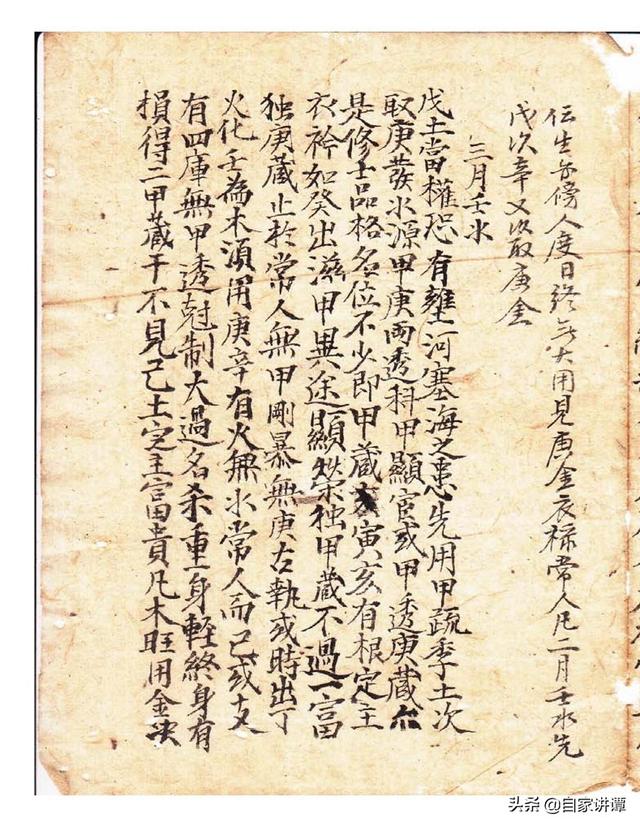 生傍人度日終無大用見庚金衣祿常人凡二月壬水先
戊次辛又次取庚金
三月壬水
戊土當權恐有壅河塞海之患先用甲疏季土次
取庚發水源甲庚两透科甲顯宦或甲透庚藏亦
是修士品格名位不少即甲藏寅亥有根定主
衣衿如癸出滋甲異途顯榮独甲藏不過一富
独庚藏止於常人無甲剛暴無庚古執或時出丁
火化壬為木須用庚辛有火無水常人而已或支
有四庫無甲透尅制大過名杀重身輕終身有
損得二甲藏干不見己土定主富貴凡木旺用金
头条 @自家讲谭